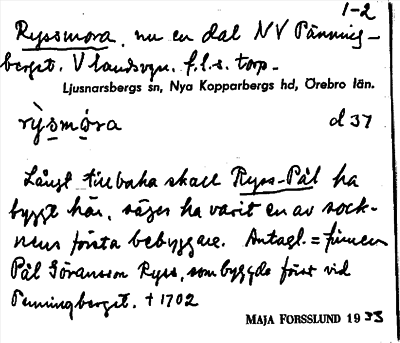 1-2
Ryssmora, nu en dal NV Pänning-
berget. V landsvgn. f.l.s. torp.
Ljusnarsbergs sn, Nya Kopparbergs hd, Örebro län.
rỳsmóra d 37
Långt tillbaka skall Ryss-Pål ha
byggt här, säges ha varit en av sock-
nens första bebyggare. Antagl. = finnen
Pål Göransson Ryss, som byggde först vid
Penningberget. † 1702
MAJA FORSSLUND 1933